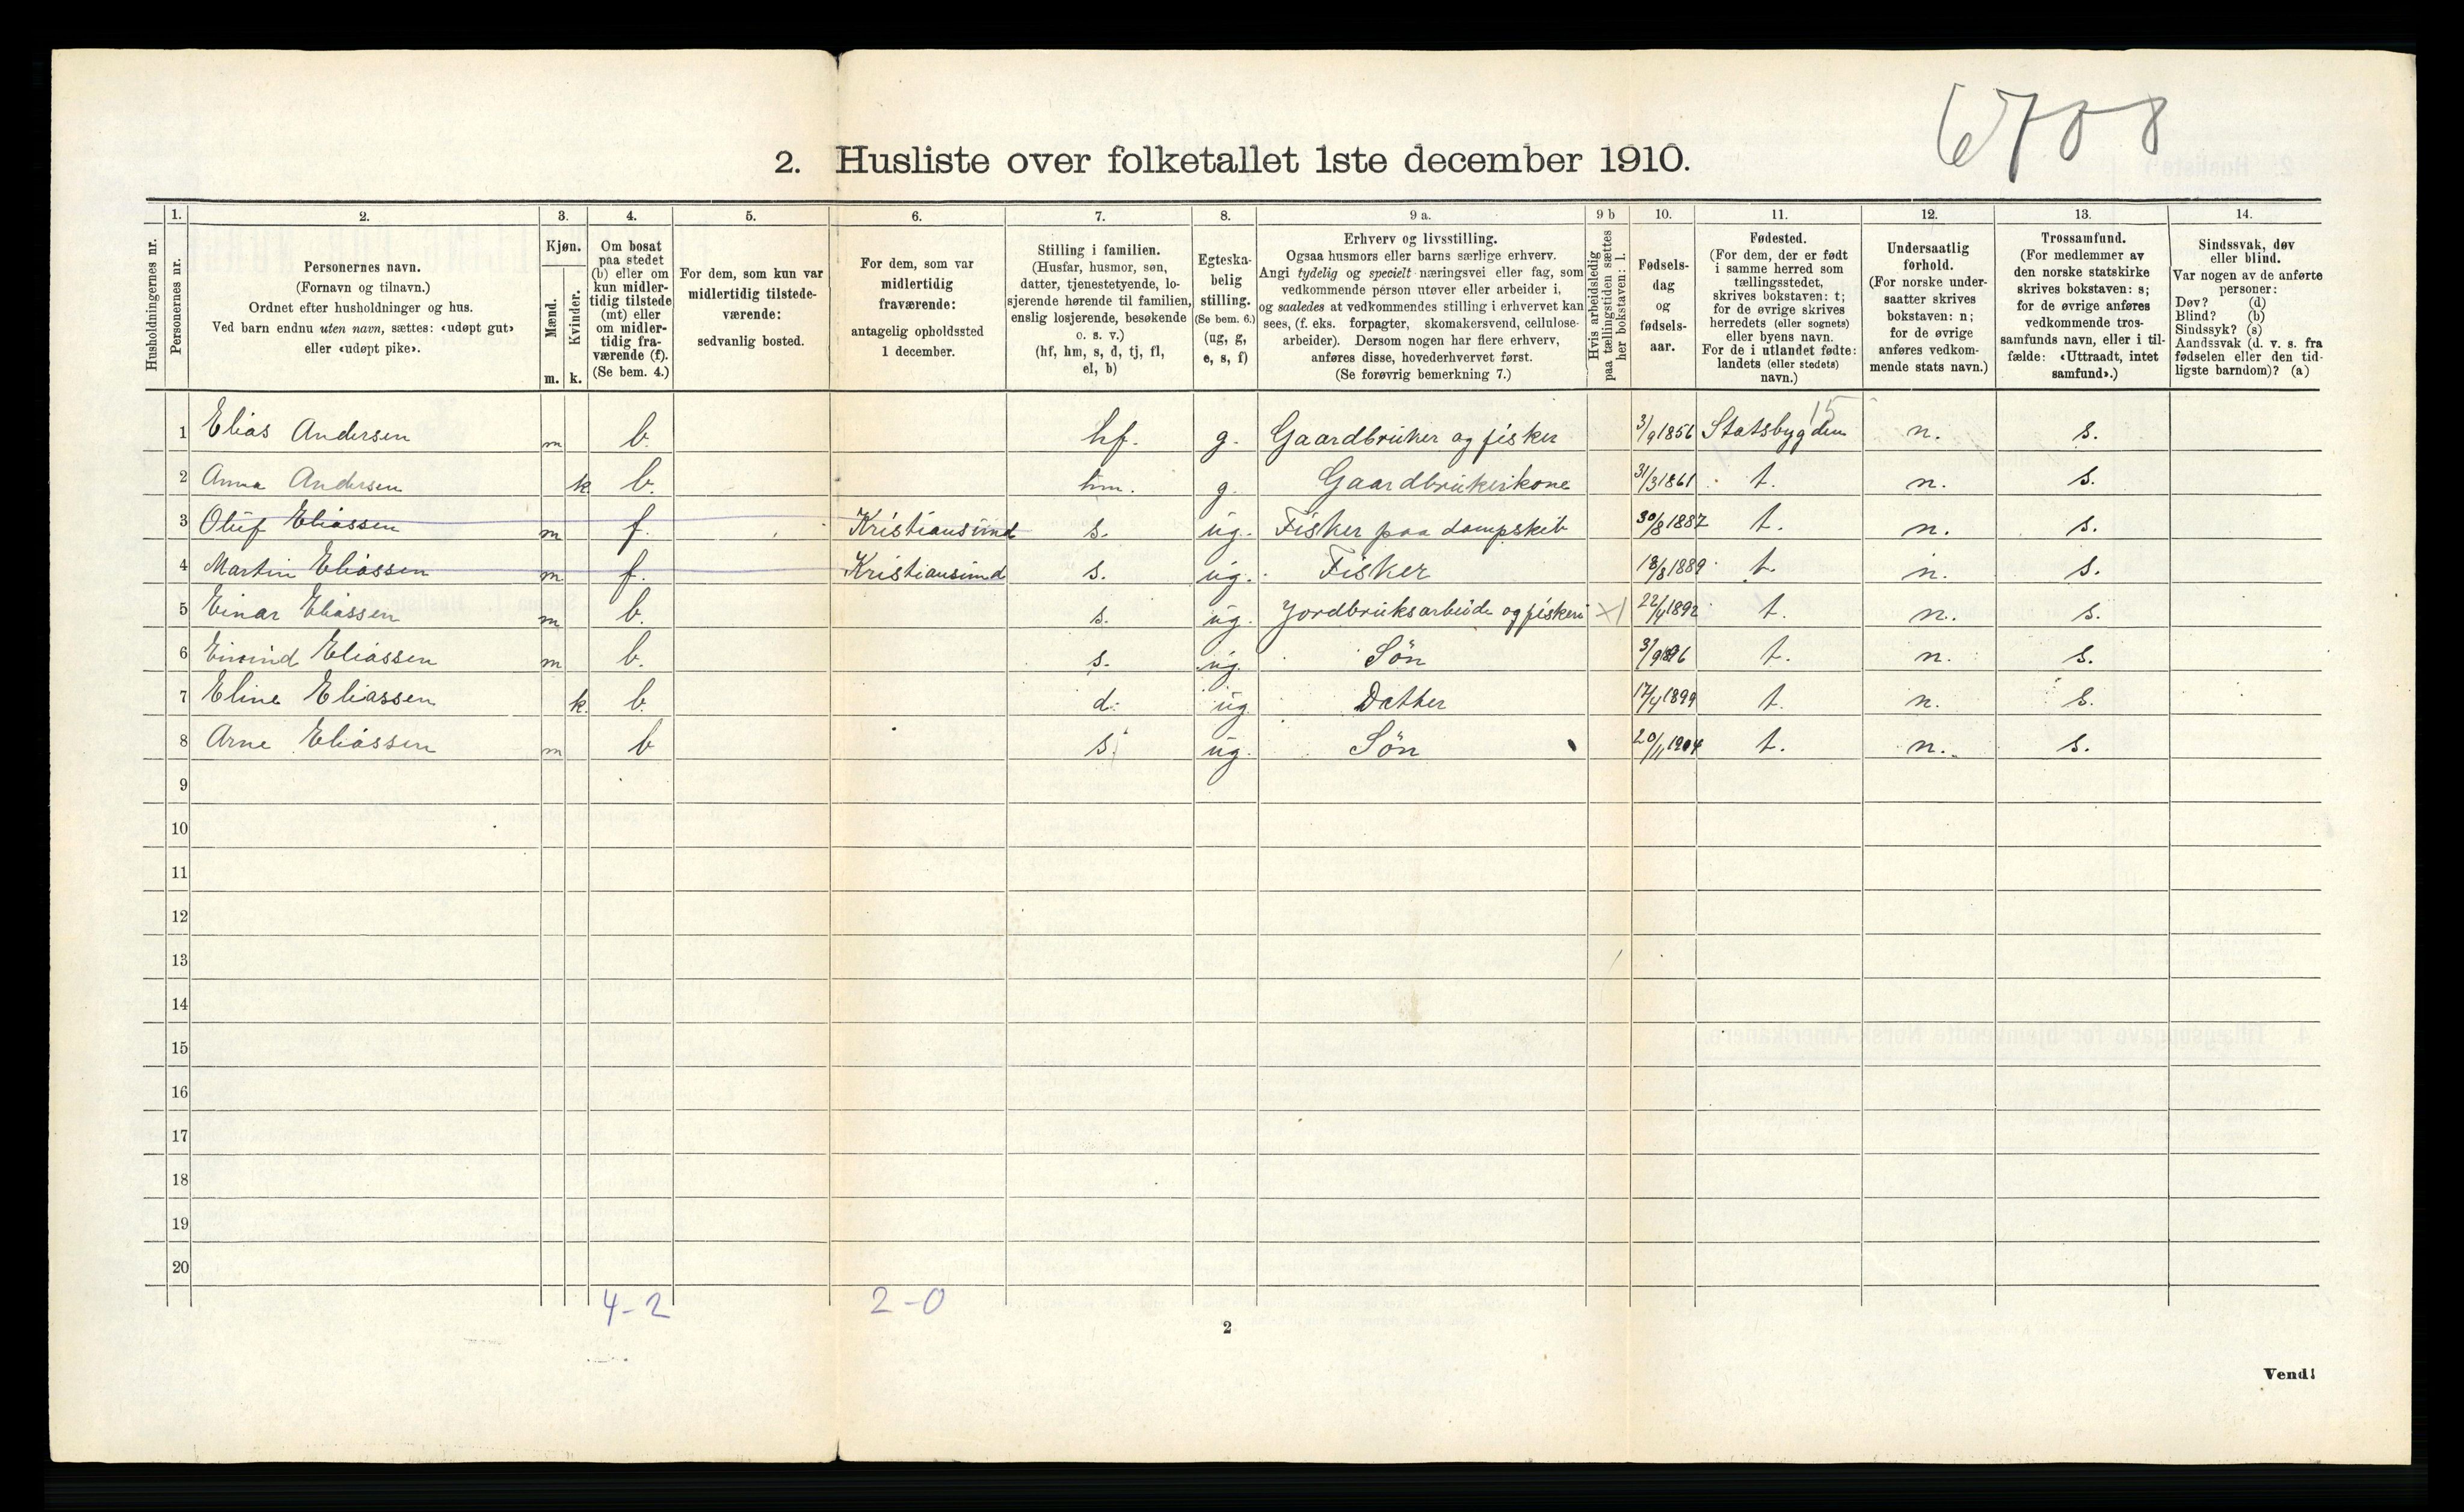 6708
2. Husliste over folketallet 1ste december 1910.
Husholdningernes nr.
1. Personernes nr.
2. Personernes navn.
(Fornavn og tilnavn.)
Ordnet efter husholdninger og hus.
Ved barn endnu uten navn, sættes: «udøpt gut»
eller «udøpt pike».
3. Kjøn.
Mænd. m.
Kvinder. k.
4. Om bosat
paa stedet
(b) eller om
kun midler-
tidig tilstede
(mt) eller
om midler-
tidig fra-
værende (f).
(Se bem. 4.)
5. For dem, som kun var
midlertidig tilstede-
værende:
sedvanlig bosted.
6. For dem, som var
midlertidig
fraværende:
antagelig opholdssted
1 december.
7. Stilling i familien.
(Husfar, husmor, søn,
datter, tjenestetyende, lo-
sjerende hørende til familien,
enslig losjerende, besøkende
o. s. v.)
(hf, hm, s, d, tj, fl,
el, b)
8. Egteska-
belig
stilling.
(Se bem. 6.)
(ug, g,
e, s, f)
9 a. Erhverv og livsstilling.
Ogsaa husmors eller barns særlige erhverv.
Angi tydelig og specielt næringsvei eller fag, som
vedkommende person utøver eller arbeider i,
og saaledes at vedkommendes stilling i erhvervet kan
sees, (f. eks. forpagter, skomakersvend, cellulose-
arbeider). Dersom nogen har flere erhverv,
anføres disse, hovederhvervet først.
(Se forøvrig bemerkning 7.)
9 b Hvis arbeidsledig
paa tællingstiden sættes
her bokstaven: l.
10. Fødsels-
dag
og
fødsels-
aar.
11. Fødested.
(For dem, der er født
i samme herred som
tællingsstedet,
skrives bokstaven: t;
for de øvrige skrives
herredets (eller sognets)
eller byens navn.
For de i utlandet fødte:
landets (eller stedets)
navn.)
12. Undersaatlig
forhold.
(For norske under-
saatter skrives
bokstaven: n;
for de øvrige
anføres vedkom-
mende stats navn.)
13. Trossamfund.
(For medlemmer av
den norske statskirke
skrives bokstaven: s;
for de øvrige anføres
vedkommende tros-
samfunds navn, eller i til-
fælde: «Uttraadt, intet
samfund».)
14. Sindssvak, døv
eller blind.
Var nogen av de anførte
personer:
Døv? (d)
Blind? (b)
Sindssyk? (s)
Aandssvak (d. v. s. fra
fødselen eller den tid-
ligste barndom)? (a)
15
1 Elias Andersen m b. hf. g. Gaardbruker og fisker 3/9 1856 Statsbygden n. s.
2 Anna Andersen k b. hm. g. Gaardbrukerkone 31/3 1861 t. n. s.
3 Oluf Eliassen m f. Kristiansund s. ug. Fisker paa dampskib 30/8 1887 t. n. s.
4 Martin Eliassen m f. Kristiansund s. ug. Fisker 18/8 1889 t. n. s.
5 Einar Eliassen m b. s. ug. Jordbruksarbeide og fiskeri 22/4 1892 t. n. s.
6 Eivind Eliassen m b. s. ug. Søn 1896 t. n. s.
7 Eline Eliassen k. b. d. ug. Datter 17/4 1899 t. n. s.
8 Arne Eliassen m b s. ug. Søn 20/1 1904 t. n. s.
9
10
11
12
13
14
15
16
17
18
19
20
4-2 2-0
2
Vend!